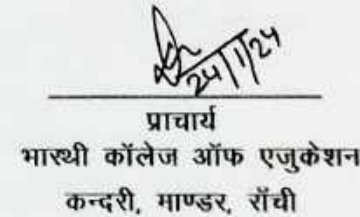 24/1/24
प्राचार्य
भारथी कॉलेज ऑफ एजुकेशन
कन्दरी, माण्डर, राँची